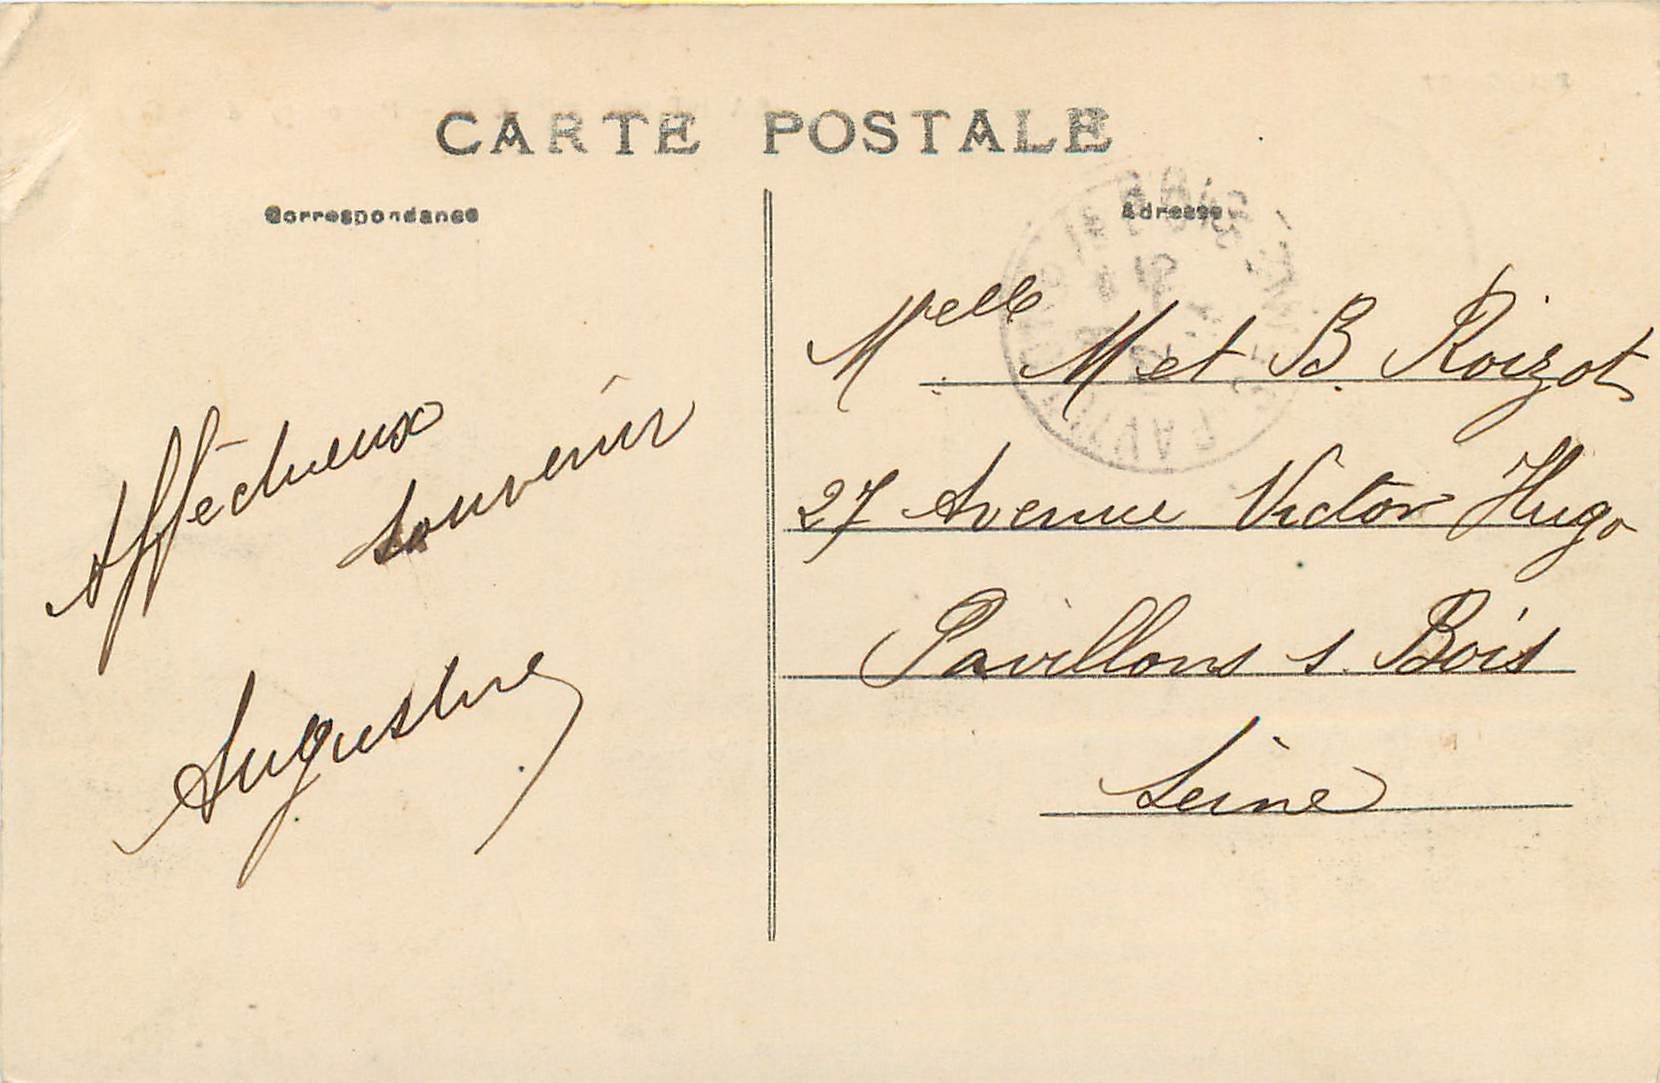 CARTE POSTALE
Correspondance
Adresse
Affectueux
souvenir
Augustine
Melle M et B. Roizot
27 Avenue Victor Hugo
Pavillons s. Bois
Seine